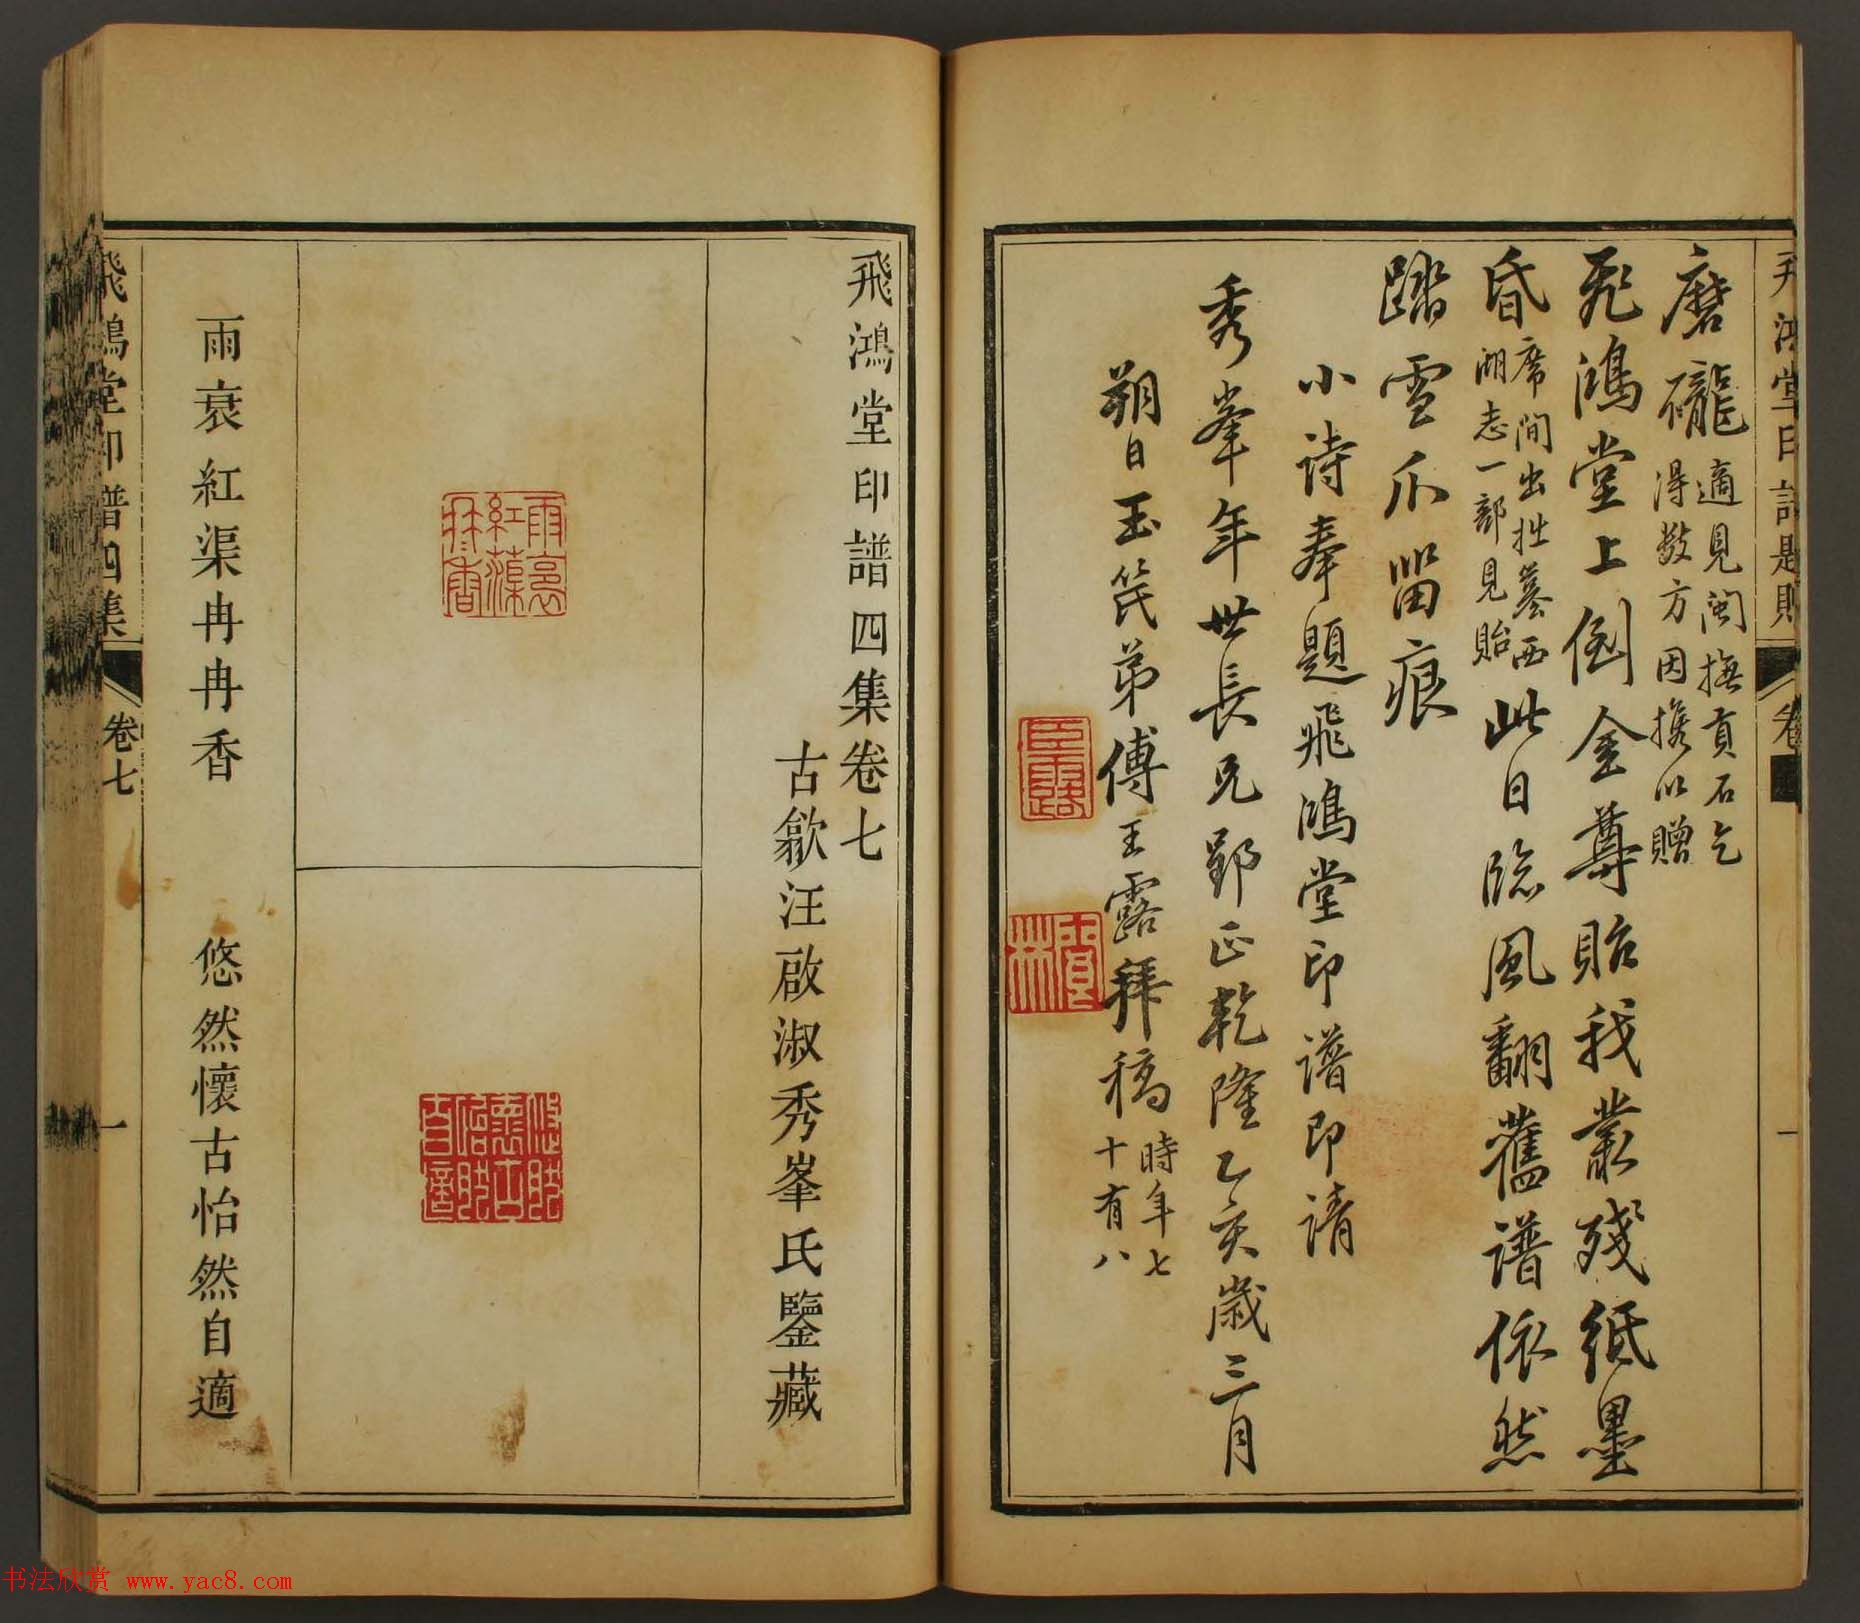 磨礲適見閩撫貢石乞
得數方因攜以贈
飛鴻堂上倒金尊貽我叢殘紙墨
昏席間出拙纂西
湖志一部見貽此日臨風翻舊譜依然
踏雪爪留痕
小詩奉題飛鴻堂印譜即請
秀峯年世長兄郢正乾隆乙亥歲三月
朔日玉笥弟傅王露拜稿時年七
十有八
臣王露
良木
飛鴻堂印譜四集卷七
古歙汪啟淑秀峯氏鑒藏
雨裛紅蕖冉冉香
悠然懷古怡然自適
雨裛紅渠冉冉香
悠然懷古怡然自適
飛鴻堂印譜四集
卷七
一
书法欣赏 www.yac8.com